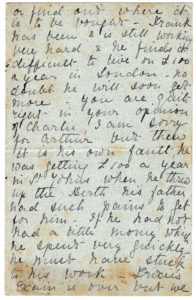 or find out where it
is to be bought - Frank
has been & is still working
very hard & he finds it
difficult to live on £100
a year in London - no
doubt he will soon get
more - you are quite
right in your opinion
of Charlie I am sorry
for Arthur but then
it is his own fault he
was getting £100 a year
in St Johns when he threw
up the Berth his father
had such pains to get
for him - If he had not
had a little money which
he spent very quickly
he must have stuck
to his work
Exam is over but we